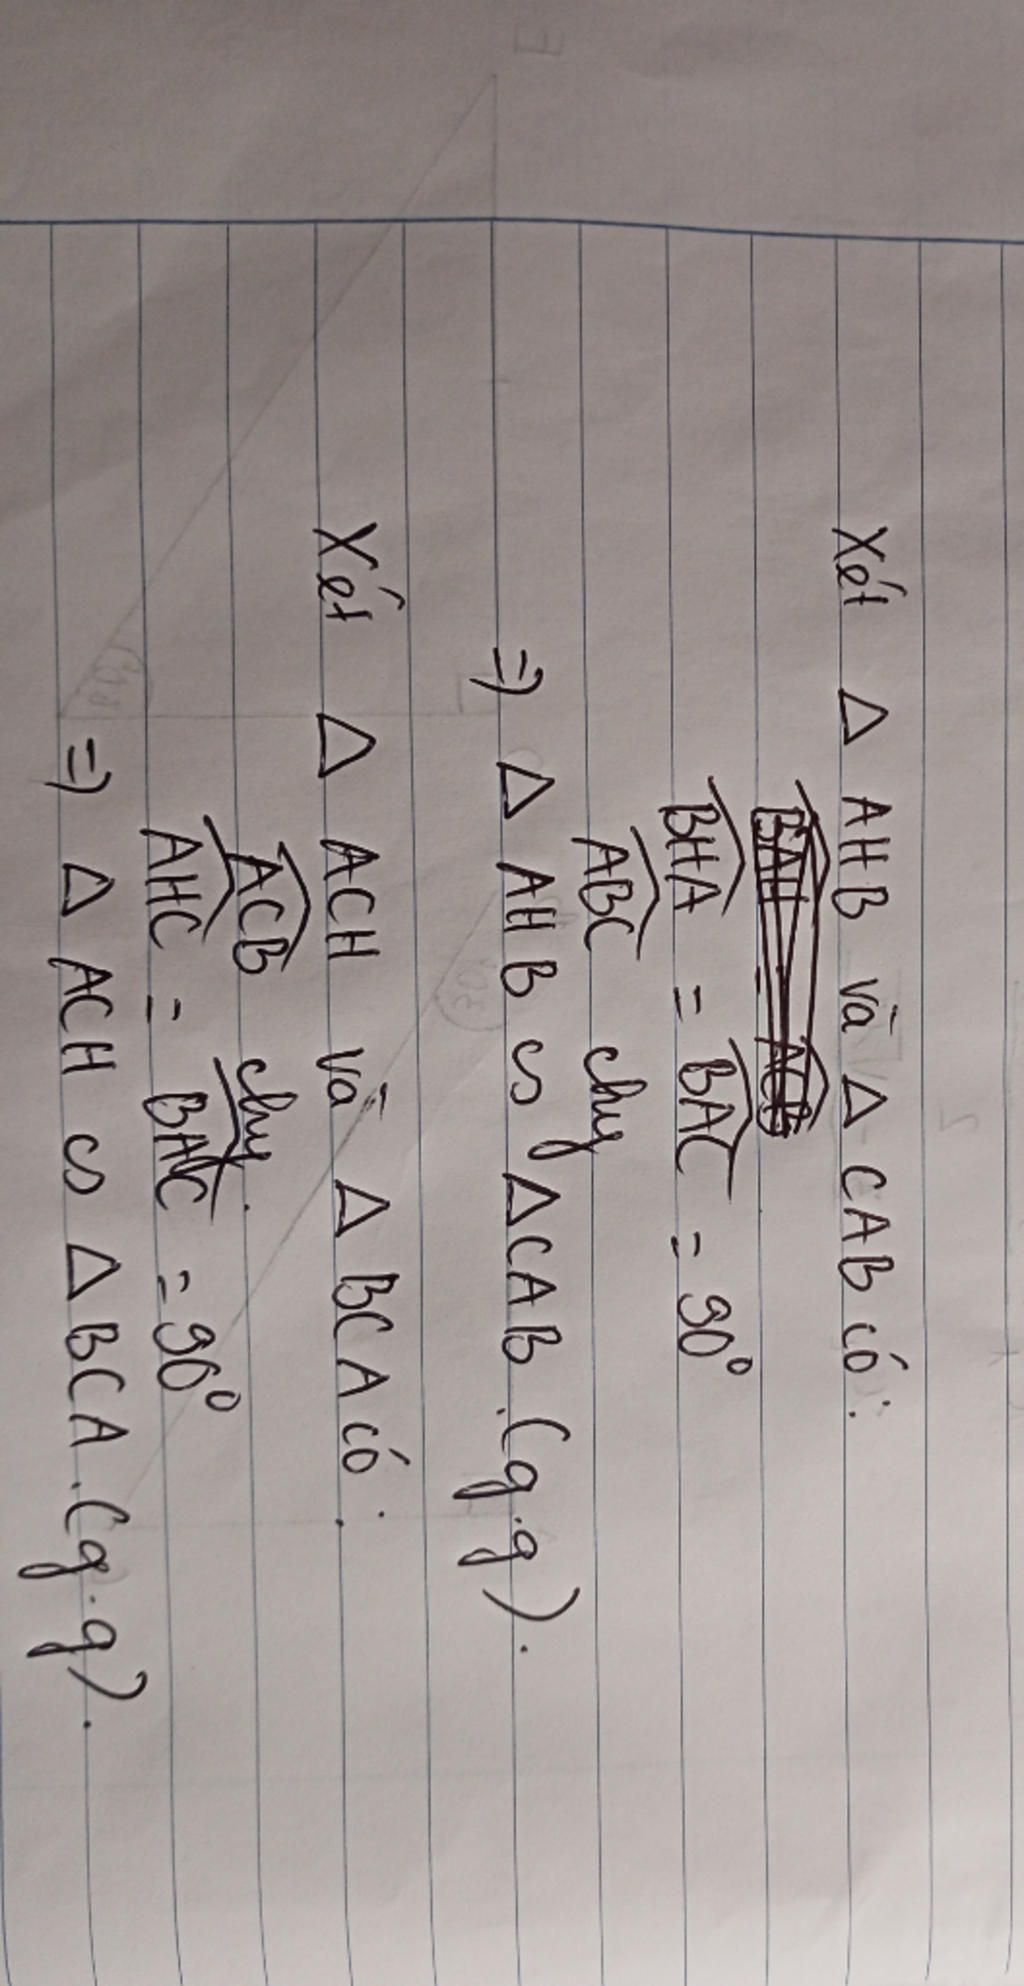 Xét Δ AHB và Δ CAB có:
BHA = BAC = 90°
ABC chy
=) Δ AHB ∽ ΔCAB (g.g).
Xét Δ ACH và Δ BCA có:
ACB chy.
AHC = BAC = 90°
=) Δ ACH ∽ Δ BCA. (g.g).